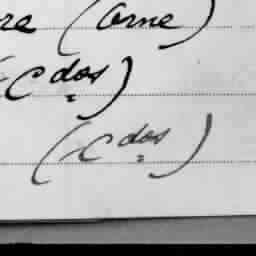 re (Orne)
(-C dos)
(-C dos)